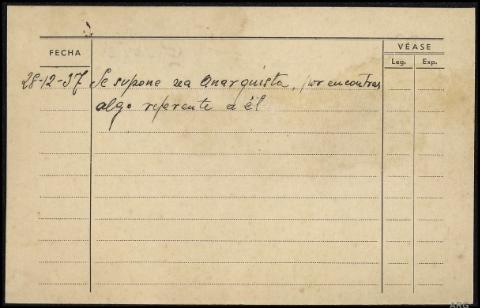 FECHA
VÉASE
Leg. Exp.
28-12-37 Se supone sea Anarquista, por encontrar
algo referente a él
ARG